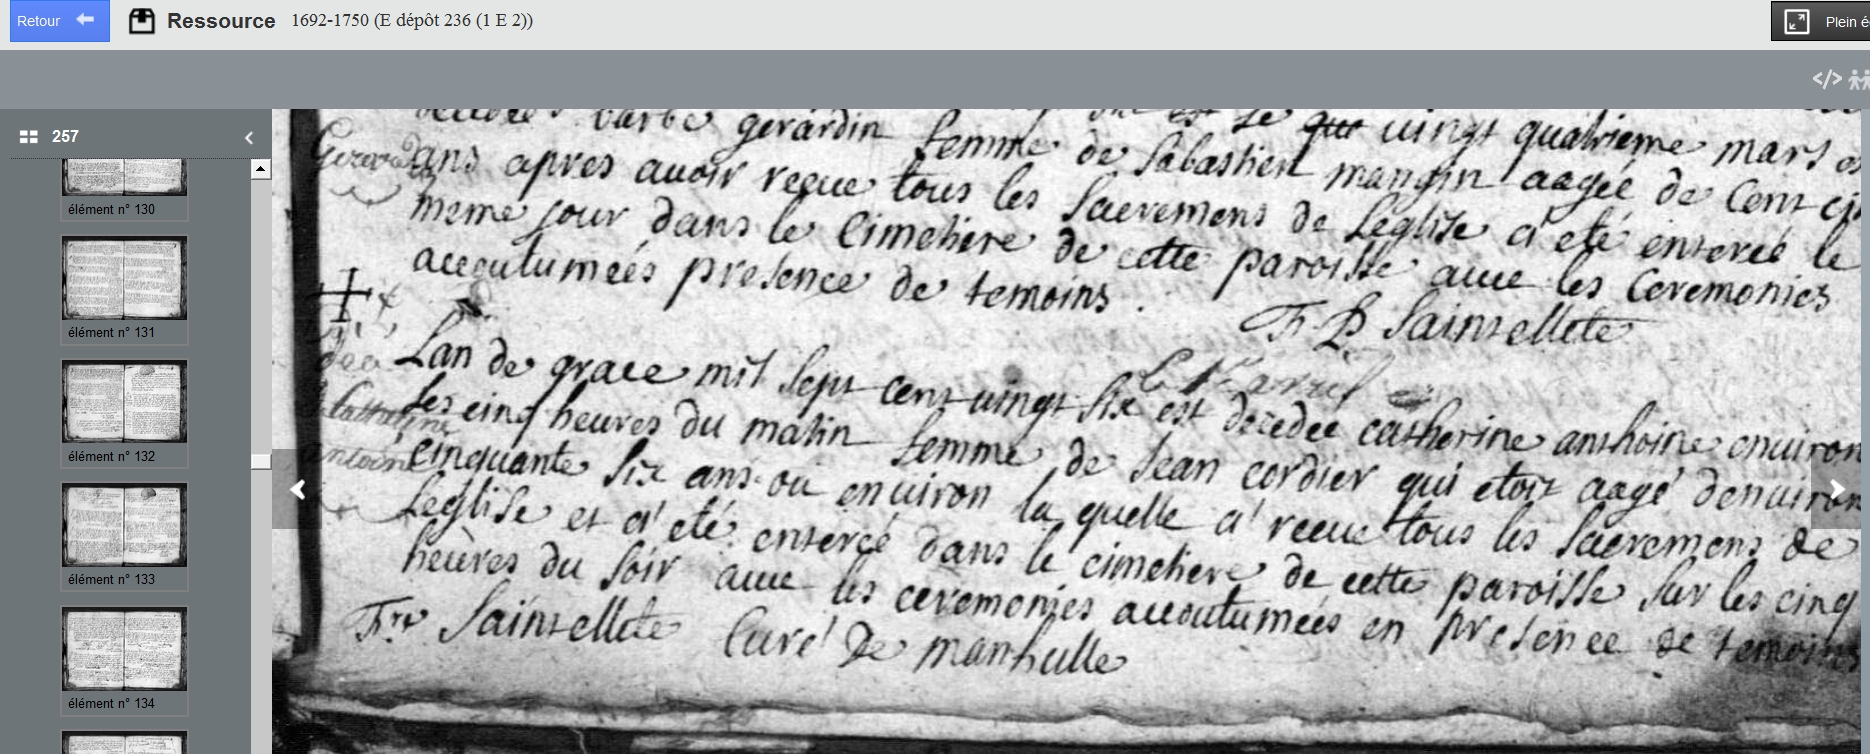 Retour
Ressource 1692-1750 (E dépôt 236 (1 E 2))
Plein é
</>
257
élément n° 130
élément n° 131
élément n° 132
élément n° 133
élément n° 134
barbe gerardin femme de sabastien mangin aagéé de Cent
ans apres auoir reçue tous les sacremens de Leglise a eté enteréé le
meme jour dans le Cimetiere de cette paroisse auec les Ceremonies
accoutuméés presence de temoins.
Saintellete
Lan de grace mil sept cent uingt six est decedee catherine anthoine enuiron
le 1er auril
les cinq heures du matin femme de Jean cordier qui etoit aagé denuiron
cinquante six ans ou enuiron la quelle a receue tous les sacremens de
Leglise et a eté enteréé dans le cimetiere de cette paroisse sur les cinq
heures du soir auec les ceremonies accoutuméés en presence de temoins
Saintellete Curé de manhulle
Catherine
antoine